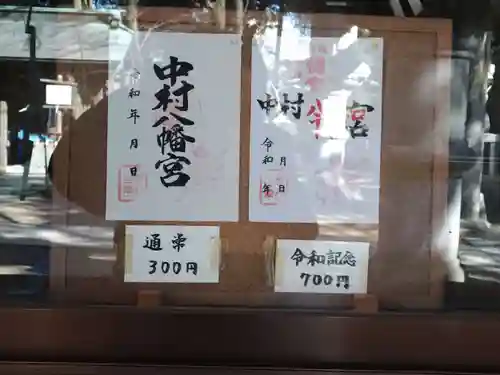 中村八幡宮
令和 年 月 日
中村 八幡 宮
令和 年 月 日
通常
300円
令和記念
700円